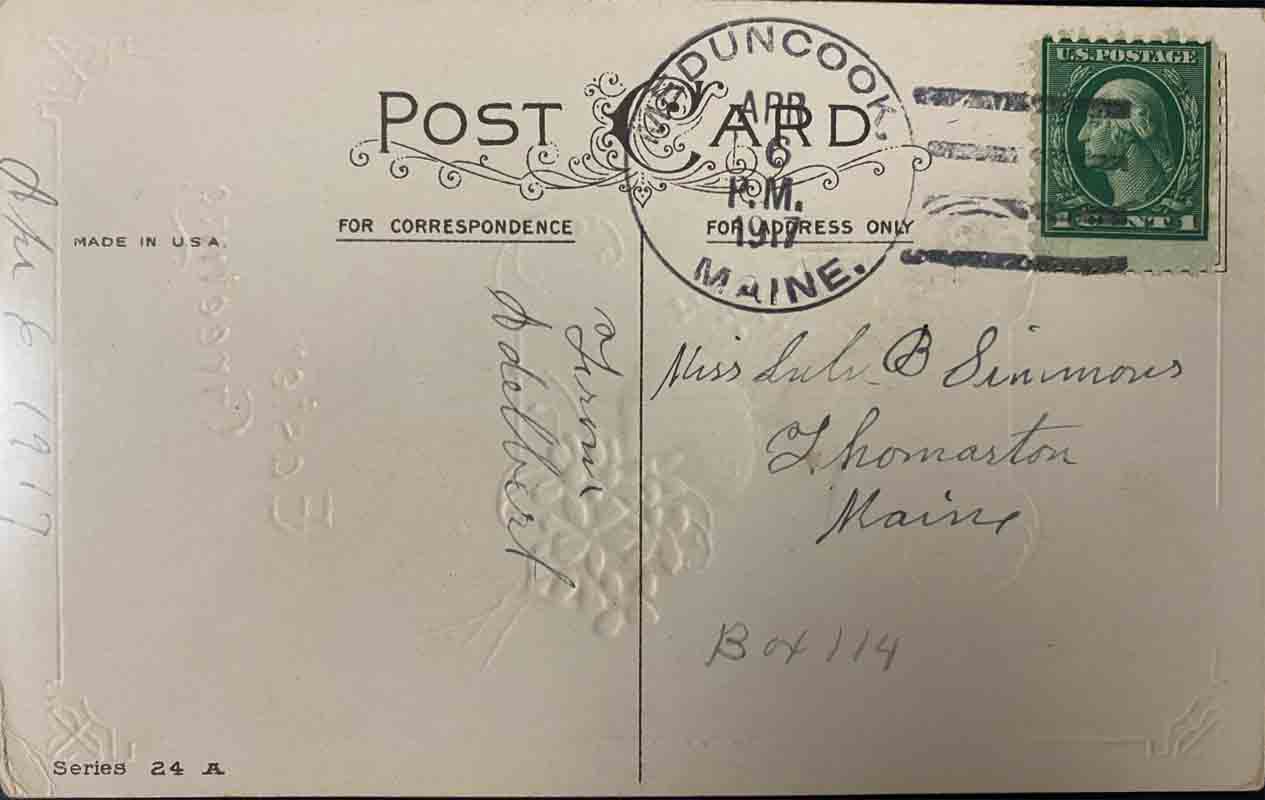 POST CARD
MEDUNCOOK,
APR
6
P.M.
1917
MAINE.
U.S.POSTAGE
1 CENT 1
FOR CORRESPONDENCE
FOR ADDRESS ONLY
MADE IN U.S.A.
Apr 6 1917
From
Adelbert
Miss Lulu B Simmons
Thomaston
Maine
Box 114
Series 24 A